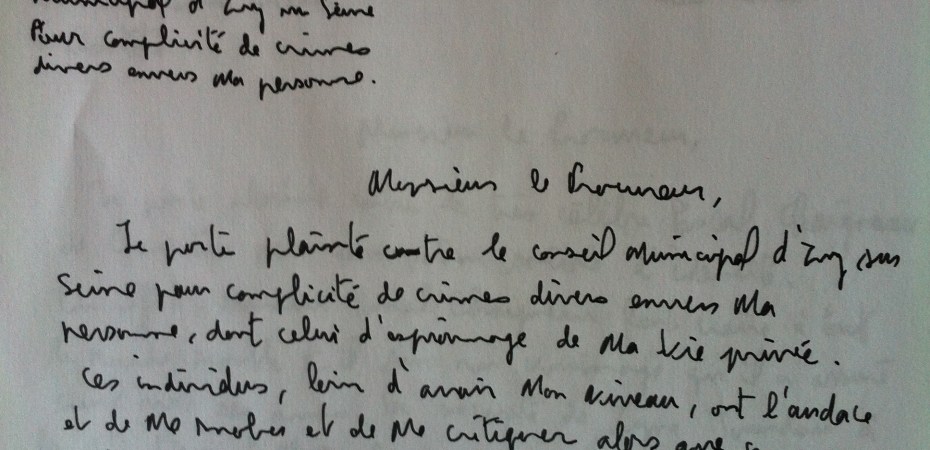 municipal d'Ivry sur Seine
Pour complicité de crimes
divers envers Ma personne.
Monsieur le Procureur,
Je porte plainte contre le conseil Municipal d'Ivry sur
Seine pour complicité de crimes divers envers Ma
personne, dont celui d'espionnage de Ma Vie privée.
Ces individus, loin d'avoir Mon niveau, ont l'audace
et de Me snober et de Me critiquer alors que